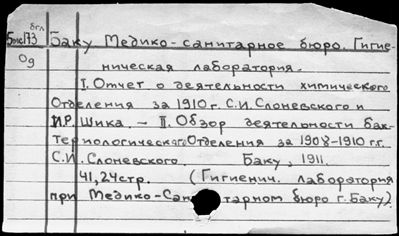 Баку Медико-санитарное бюро. Гигие-
ническая лаборатория.
I. Отчет о деятельности химического
Отделения за 1910 г. С.И. Слоневского и
И.Р. Шика. – II. Обзор деятельности бак-
териологическ. Отделения за 1908-1910 г.г.
С.И. Слоневского. Баку, 1911.
41, 24 стр. (Гигиенич. лаборатория
при Медико-Санитарном бюро г. Баку)